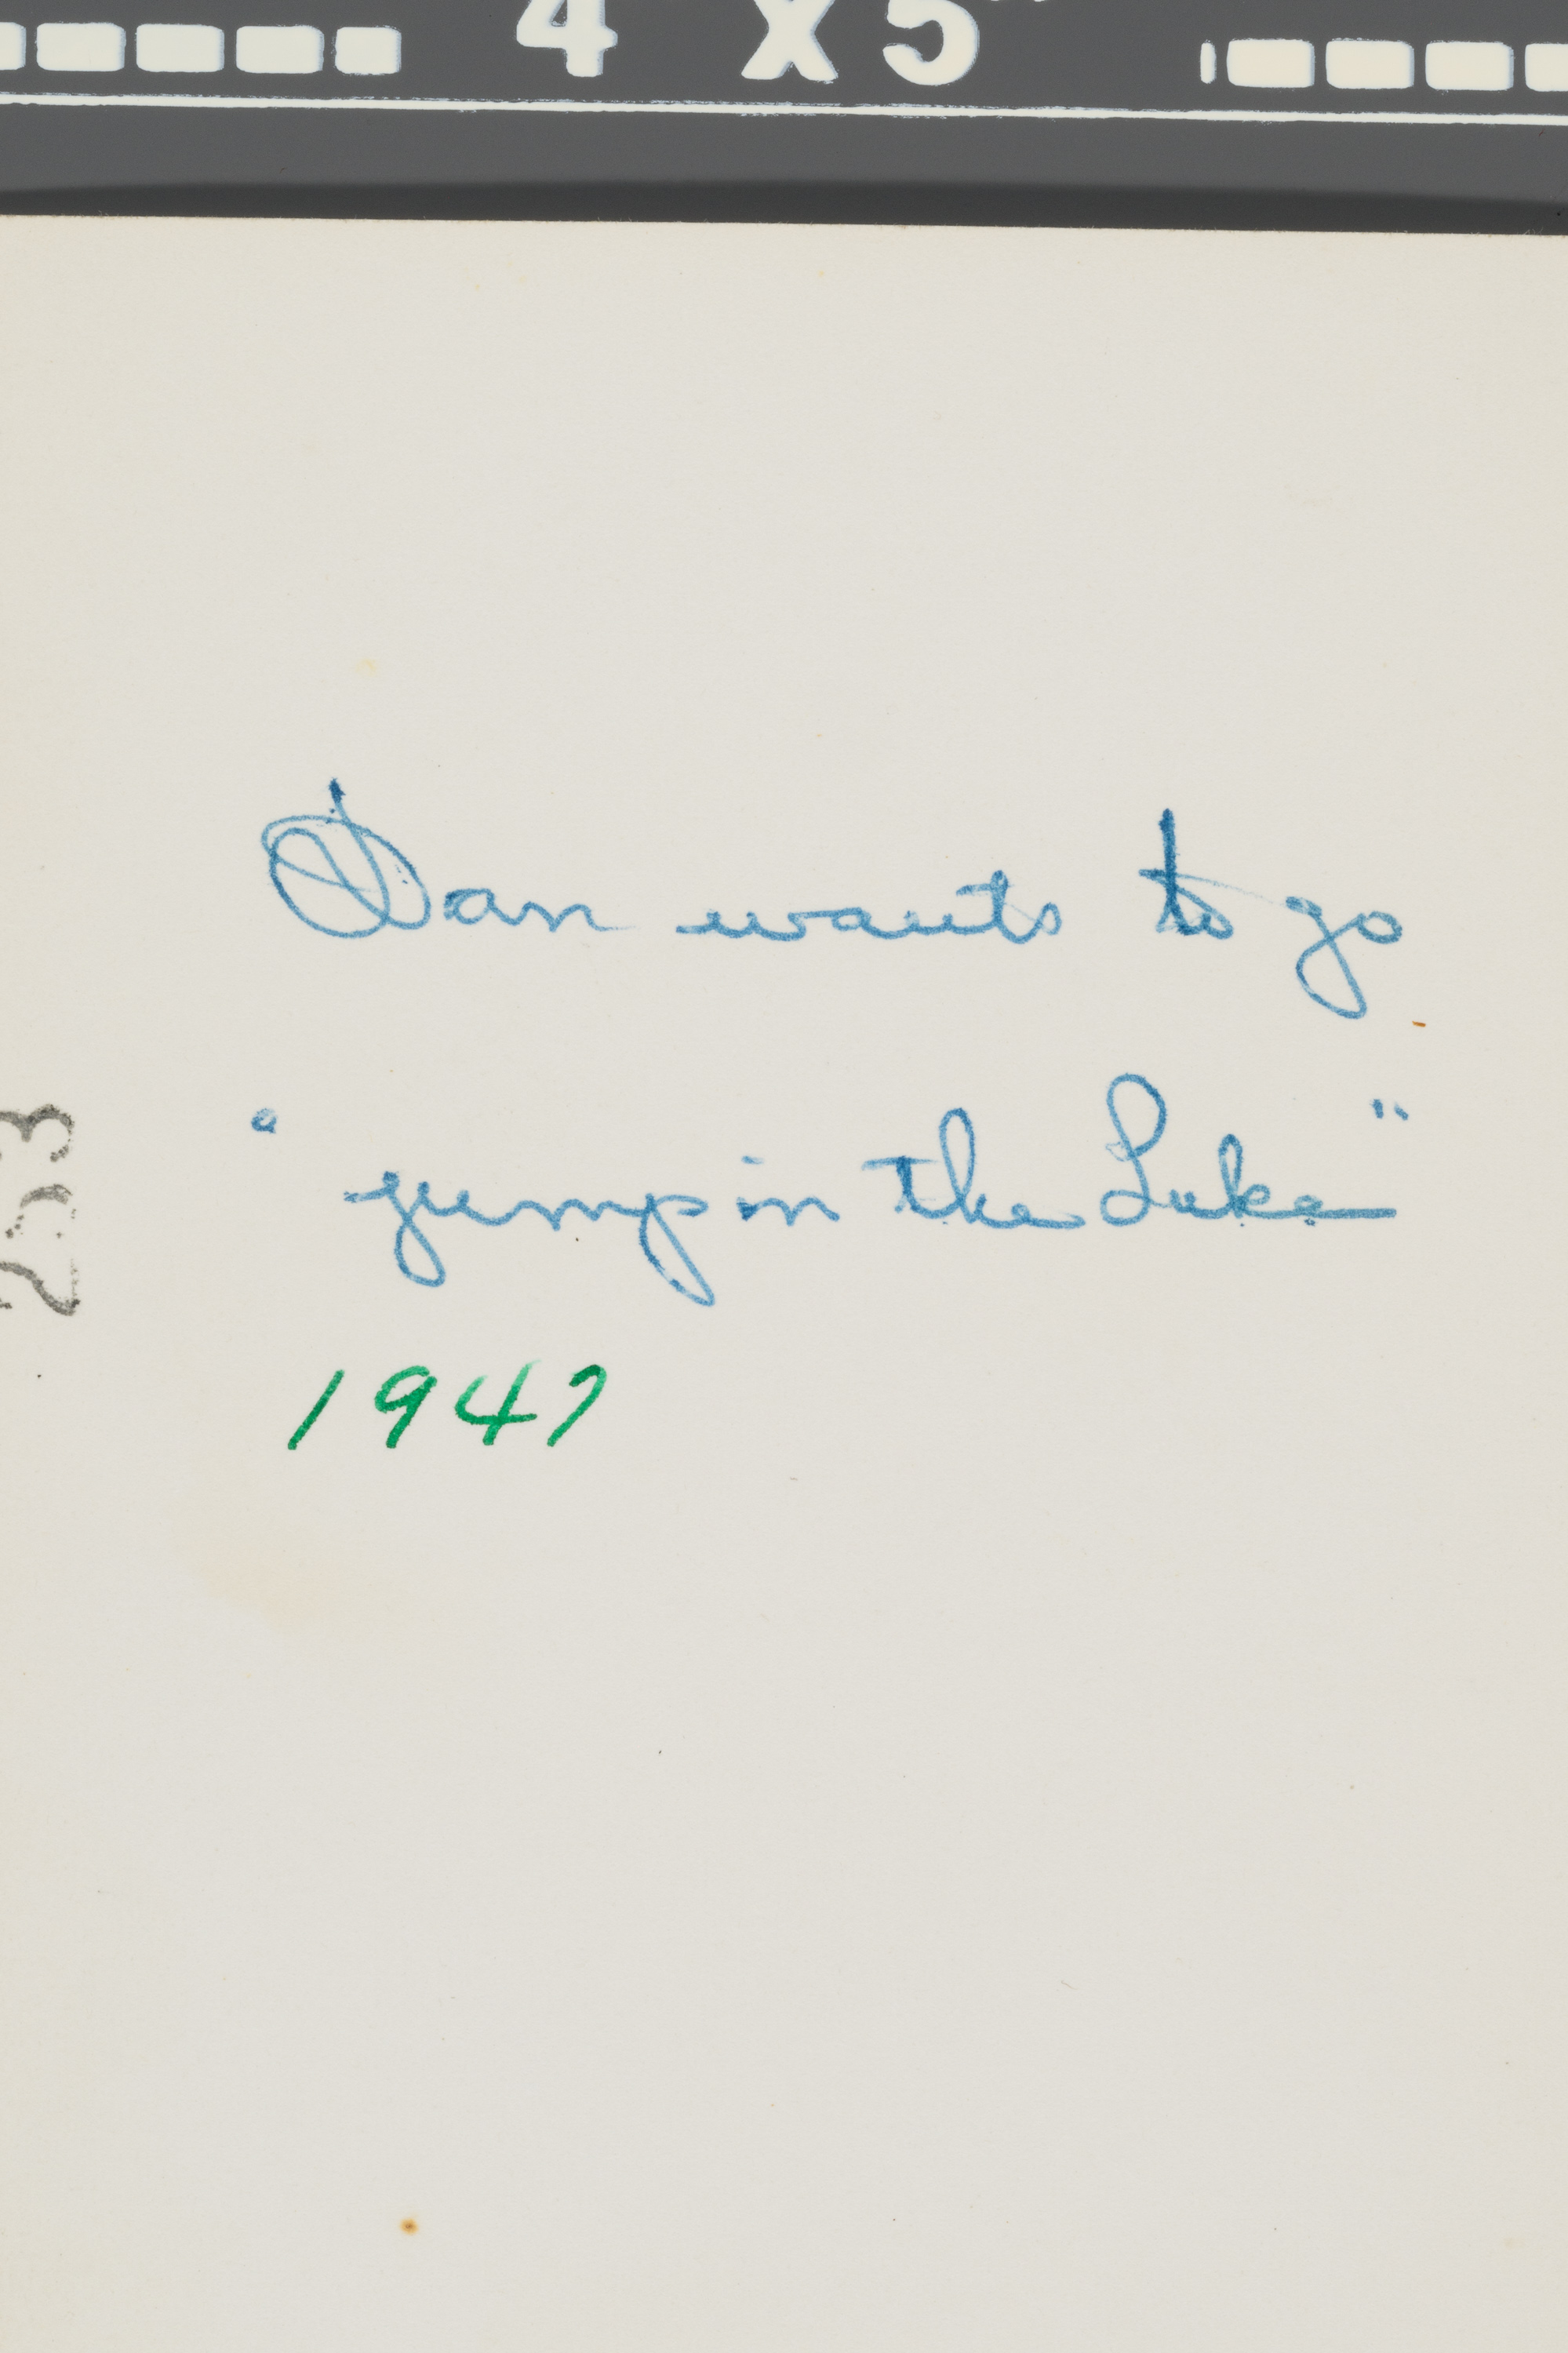 4 x 5"
Dan wants to go
"jump in the Lake"
1947
253